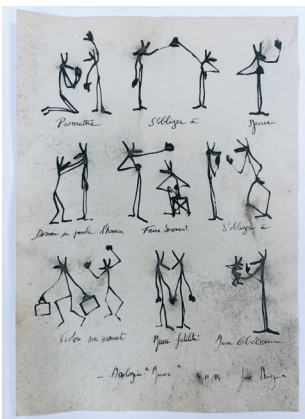 Promettre S'obliger à Jurer
Donner sa parole d'honneur Faire serment S'obliger à
Violer son serment Jurer fidélité Jurer obéissance
— Analogie "Jurer"